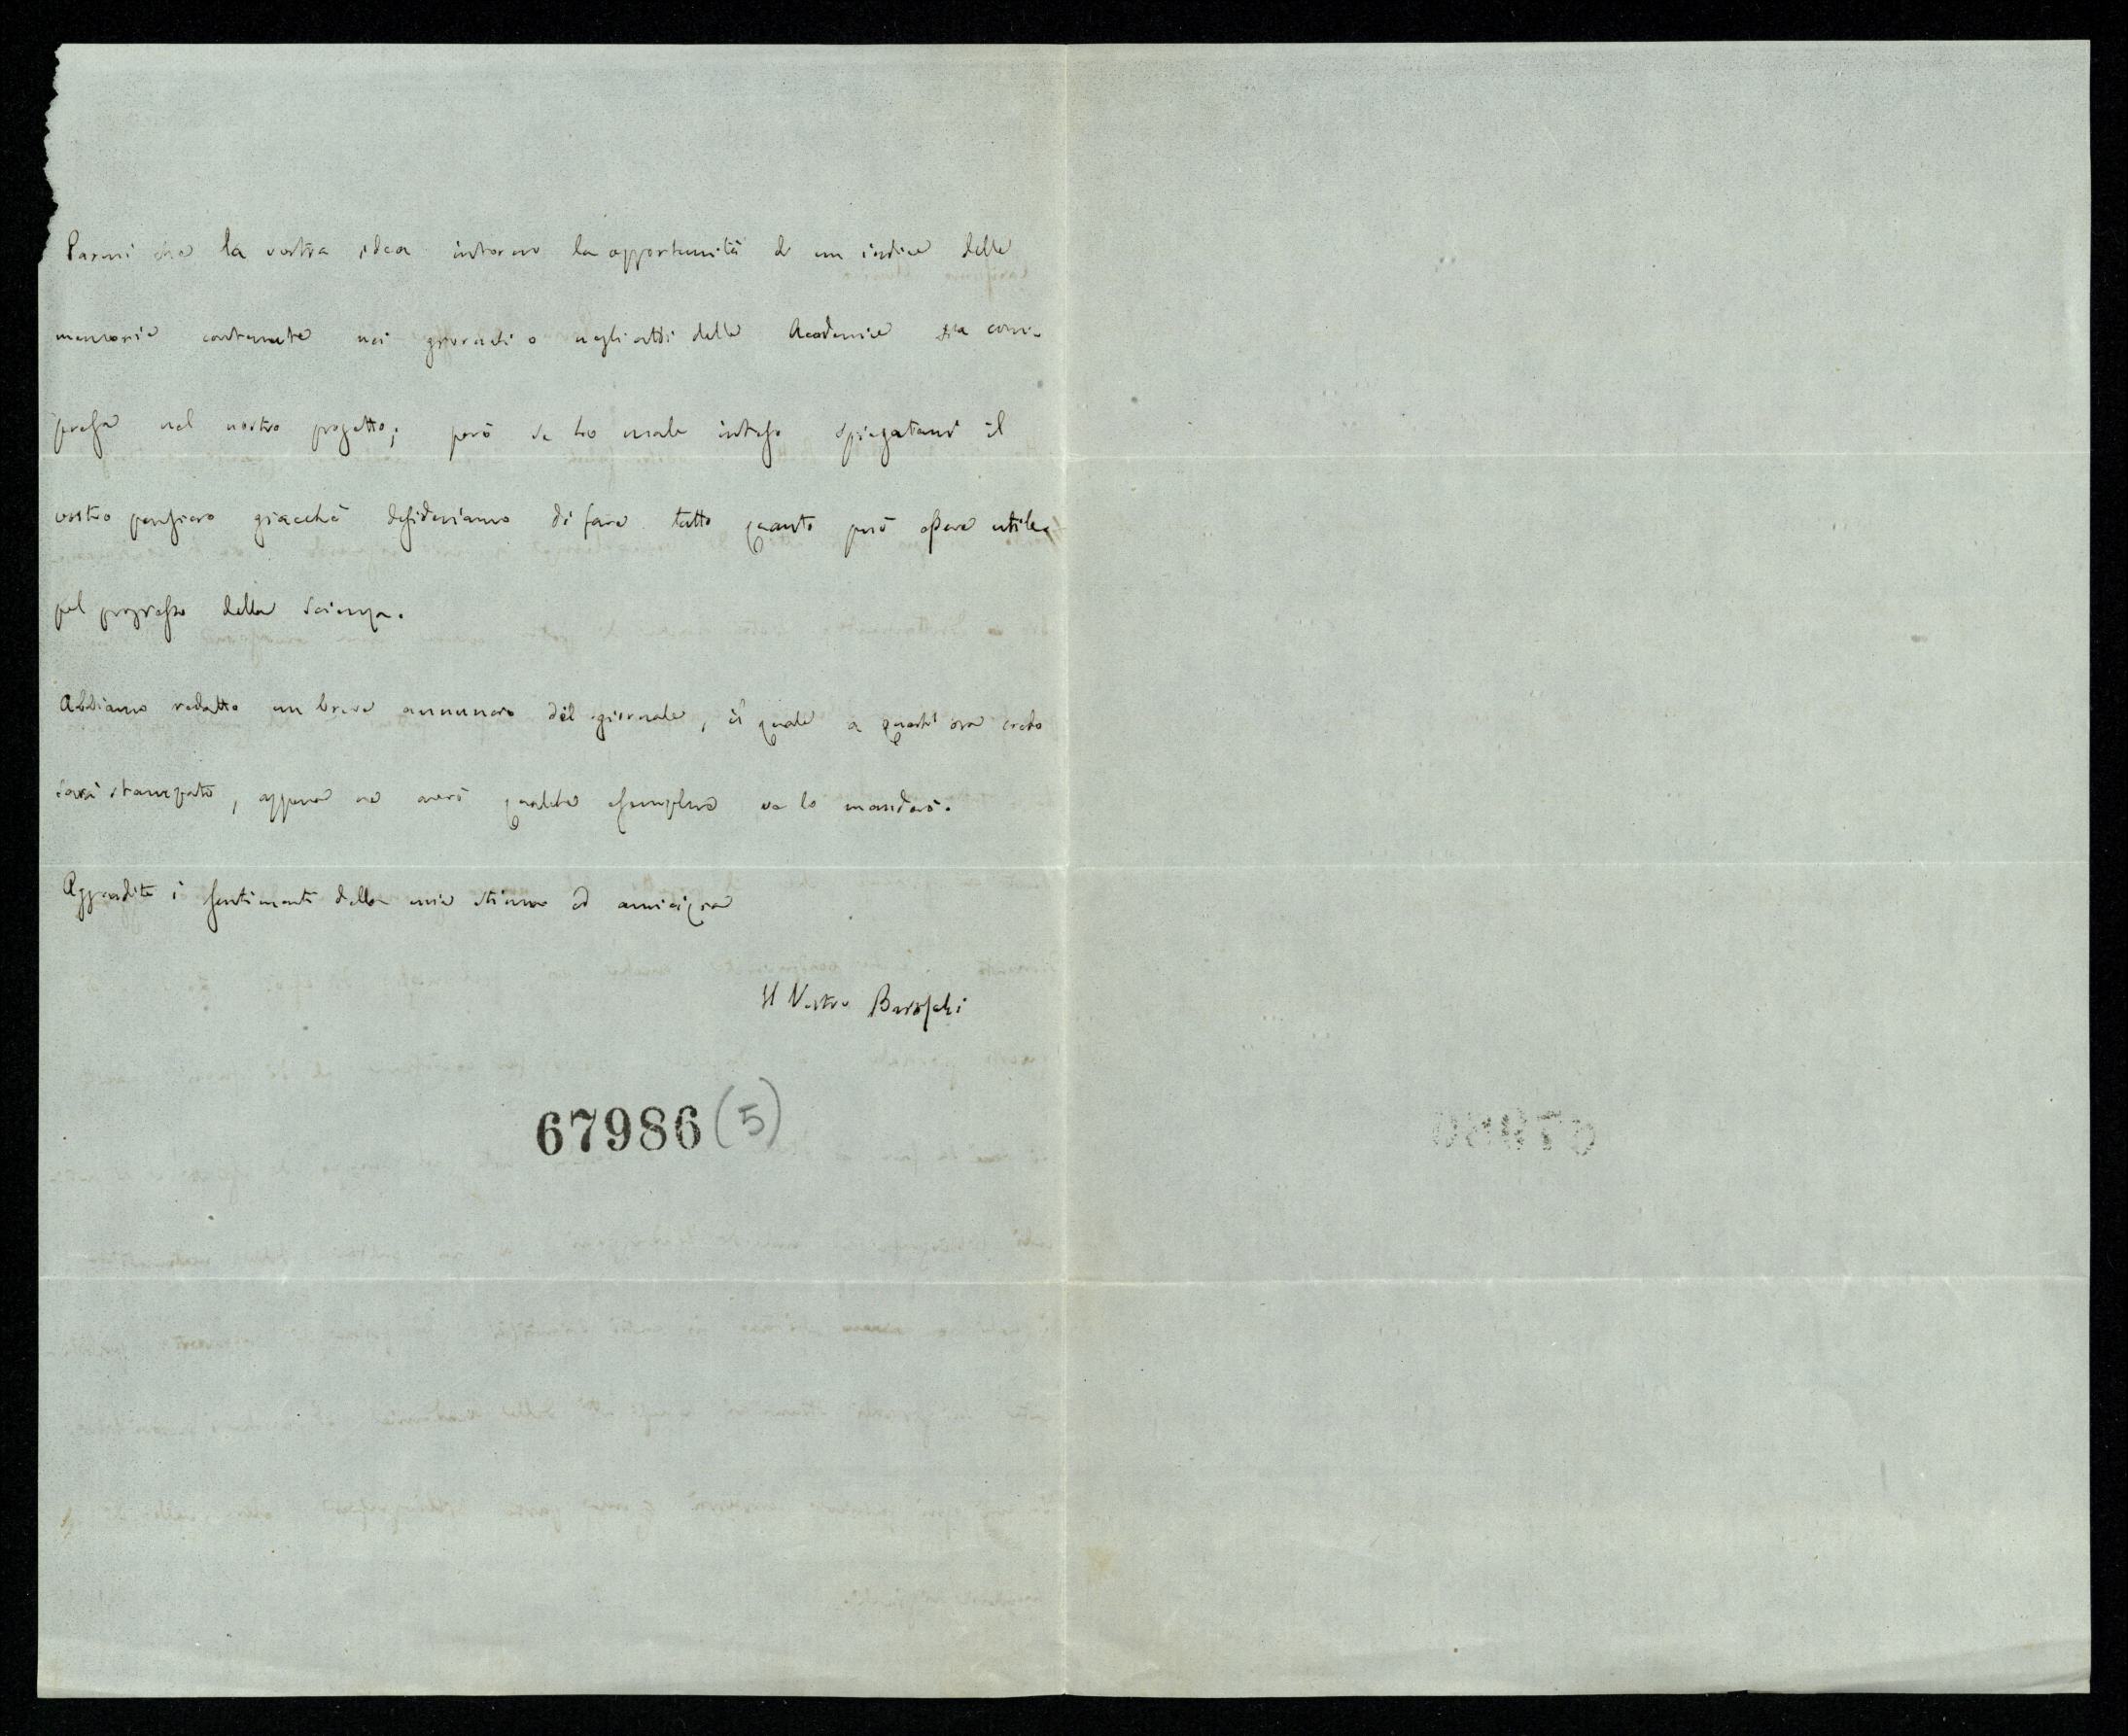 Parmi che la vostra idea intorno la opportunità di un indice delle
memorie contenute nei giornali o negli atti delle Accademie sia com-
presa nel nostro progetto; però se ho male inteso spiegatemi il
vostro pensiero giacchè desideriamo di fare tutto quanto può essere utile
pel progresso della Scienza.
Abbiamo redatto un breve annuncio del giornale, il quale a quest'ora credo
sarà stampato, appena ne avrò qualche esemplare ve lo manderò.
Aggradite i sentimenti della mia stima ed amicizia
Il Vostro Brioschi
67986 (5)